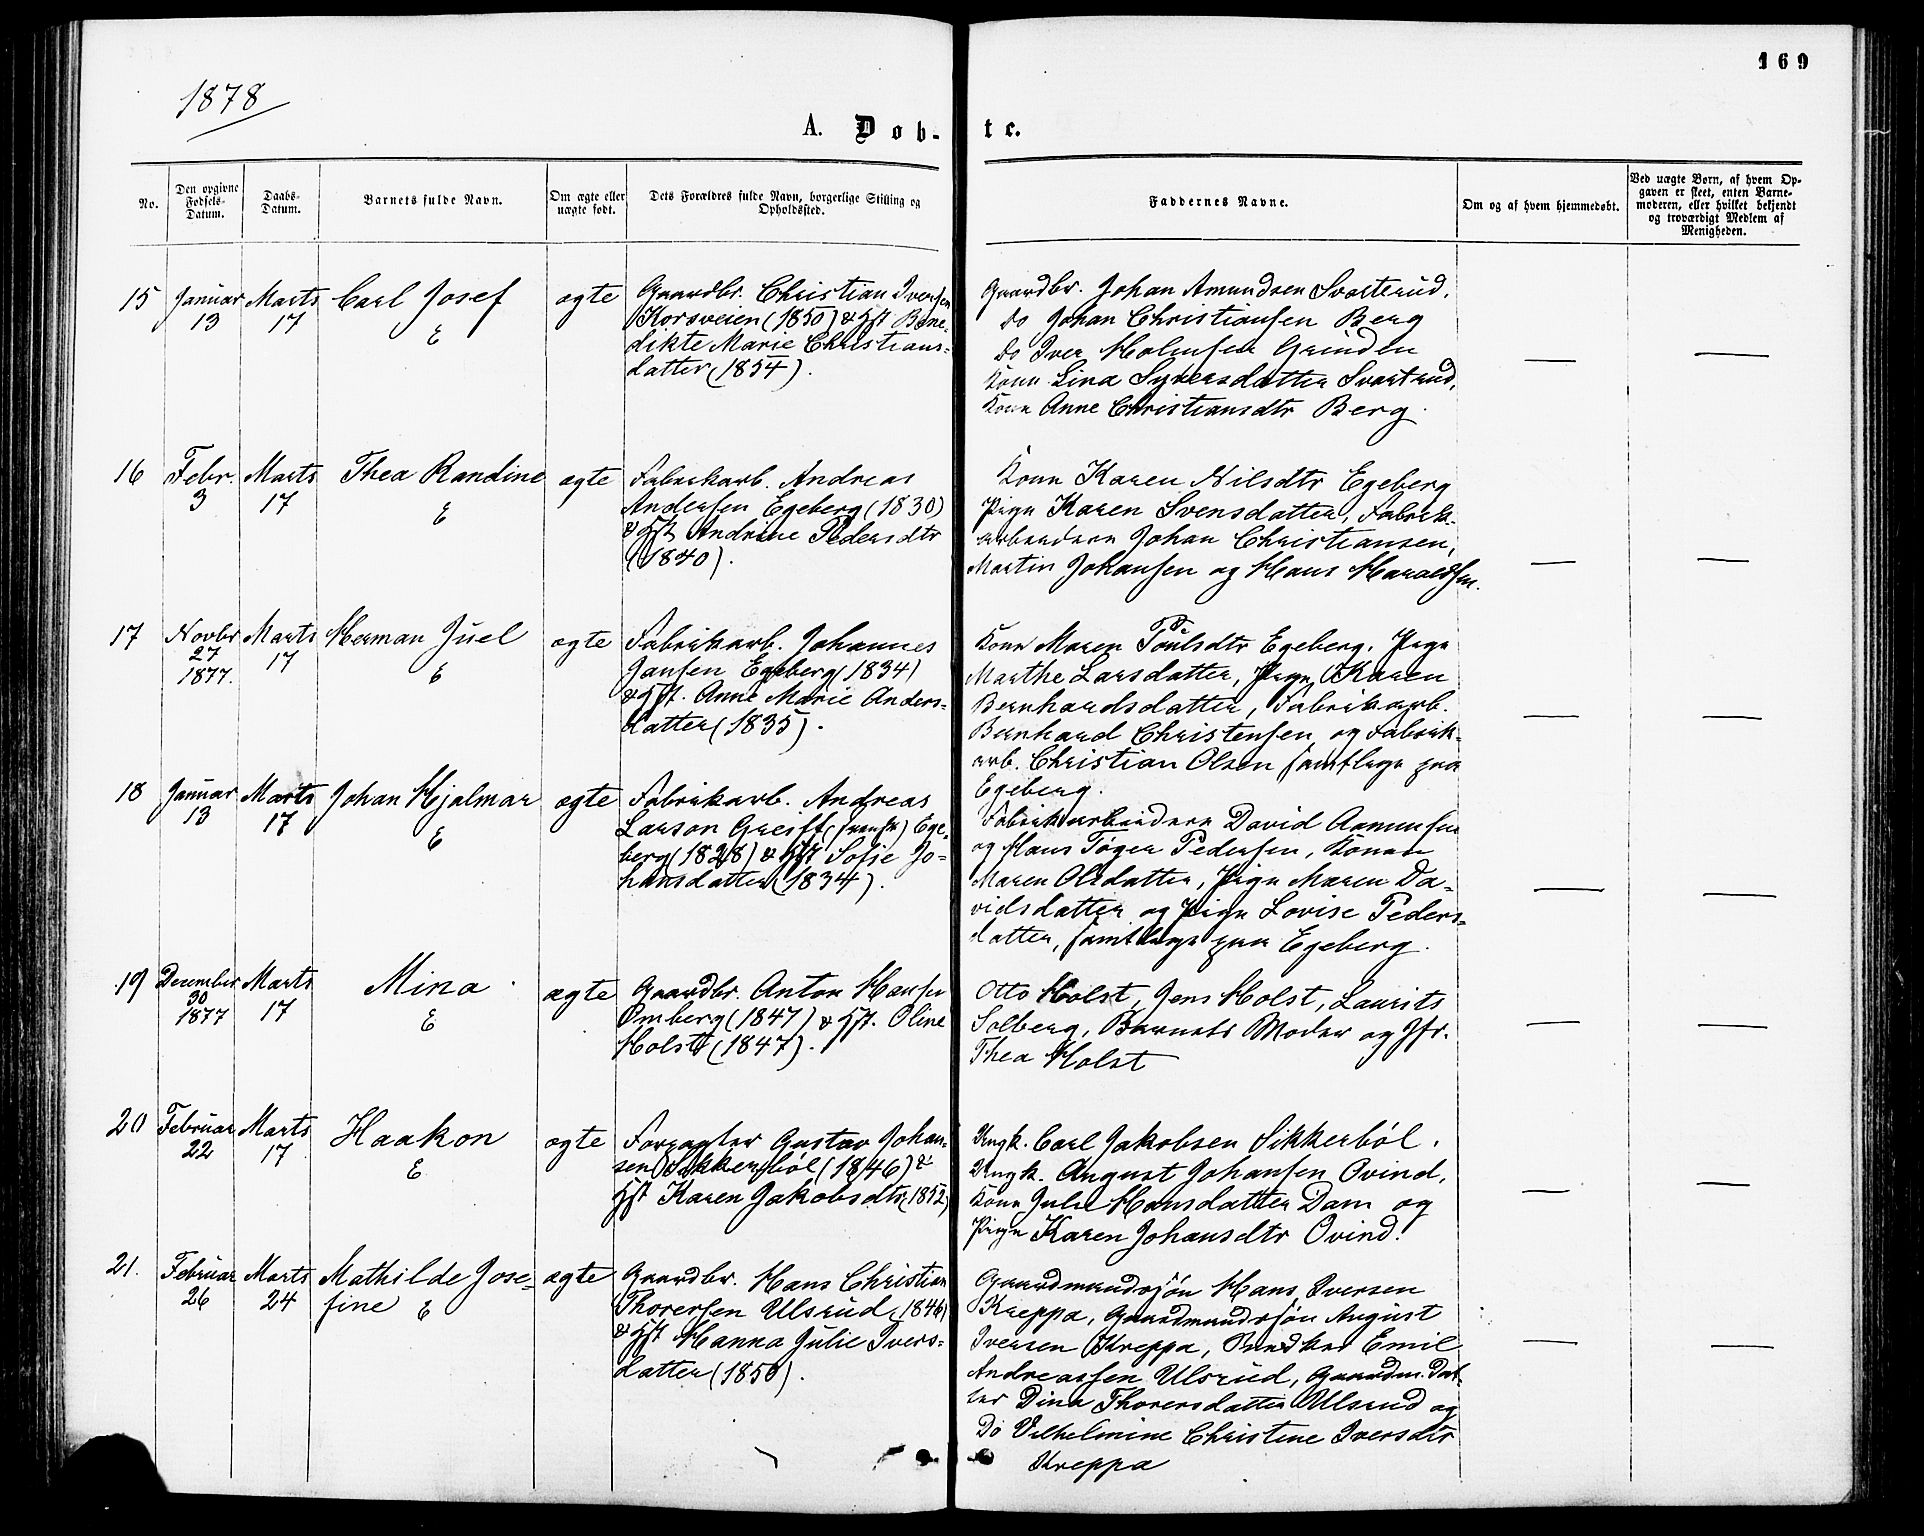 169
1878
A. Døb-te.
No.
Den opgivne Fødsels-Datum.
Daabs-Datum.
Barnets fulde Navn.
Om ægte eller uægte født.
Dets Forældres fulde Navn, borgerlige Stilling og Opholdssted.
Faddernes Navne.
Om og af hvem hjemmedøbt.
Ved uægte Børn, af hvem Opgaven er skeet, enten Barnemoderen, eller hvilket bekjendt og troværdigt Medlem af Menigheden.
15 Januar 13 Marts 17 Carl Josef E ægte
Gaardbr. Christian Iversen
Korsveien (1850) & Hst Bene-
dikte Marie Christians-
datter (1854).
Gaardbr. Johan Amundsen Svartrud.
Do Johan Christiansen Berg
Do Iver Holmsen Grinden
Kone Lina Syversdatter Svartrud,
Kone Anne Christiansdtr Berg.
16 Febr. 3 Marts 17 Thea Randine E ægte
Fabrikarb. Andreas
Andersen Egeberg (1830)
& Hst Andrine Pedersdtr
(1840).
Kone Karen Nilsdtr Egeberg
Pige Karen Svensdatter, Fabrik-
arbeidere Johan Christiansen,
Martin Johansen og Hans Haraldsen.
17 Novbr 27 1877. Marts 17 Herman Juel E ægte
Fabrikarb. Johannes
Jansen Egeberg (1834)
& Hst. Anne Marie Anders-
datter (1835).
Kone Maren Poulsdtr Egeberg, Pige
Marthe Larsdatter, Pige Karen
Bernhardsdatter, Fabrikarb.
Bernhard Christensen og Fabrik-
arb. Christian Olsen samtlige paa
Egeberg.
18 Januar 13 Marts 17 Johan Hjalmar E ægte
Fabrikarb. Andreas
Larson Greiff (svensk) Ege-
berg (1828) & Hst Sofie Jo-
hansdatter (1834).
Fabrikarbeidere David Aamunsen
og Hans Tøger Pedersen, Konen
Maren Olsdatter, Pige Maren Da-
vidsdatter og Pige Lovise Peders-
datter, samtlige paa Egeberg.
19 December 30 1877 Marts 17 Mina E ægte
Gaardbr. Anton Hansen
Omberg (1847) & Hst. Oline
Holst (1847).
Otto Holst, Jens Holst, Laurits
Solberg, Barnets Moder og Jfr.
Thea Holst
20 Februar 22 Marts 17 Haakon E ægte
Forpagter Gustav Johan-
sen Sikkerbøl (1846) &
Hst Karen Jakobsdtr (1852)
Ungk. Carl Jakobsen Sikkerbøl.
Ungk. August Johansen Ovind,
Kone Julie Hansdatter Dam og
Pige Karen Johansdtr Ovind.
21. Februar 26 Marts 24 Mathilde Jose-
fine E ægte
Gaardbr. Hans Christian
Thorersen Ulsrud (1846)
& Hst Hanna Julie Ivers-
datter (1850).
Gaardmandssøn Hans Iversen
Kreppa, Gaardmandssøn August
Iversen Kreppa, Emil
Andreassen Ulsrud, Gaardm. Dat-
ter Dina Thorersdatter Ulsrud og
Do Vilhelmine Christine Iversdtr
Kreppa